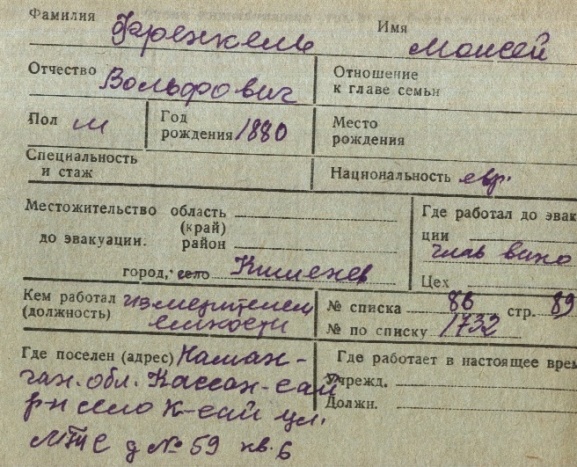 Фамилия Френкель Имя Моисей
Отчество Вольфович Отношение
к главе семьи
Пол м Год
рождения 1880 Место
рождения
Специальность
и стаж Национальность евр.
Местожительство область
(край)
до эвакуации. район
город, село Кишенев
Где работал до эвак
ции
глав вино
Цех
Кем работал измерителем
(должность) емкости
№ списка 86 стр. 89
№ по списку 1732
Где поселен (адрес) Наман-
ган. обл. Кассан-сай
р-н село К-сай ул.
МТС д № 59 кв. 6
Где работает в настоящее врем
Учрежд.
Должн.